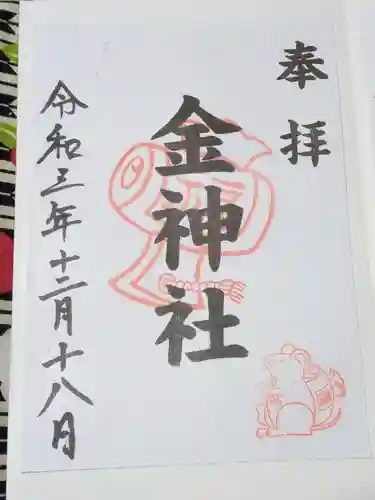 奉拝
金神社
令和三年十二月十八日